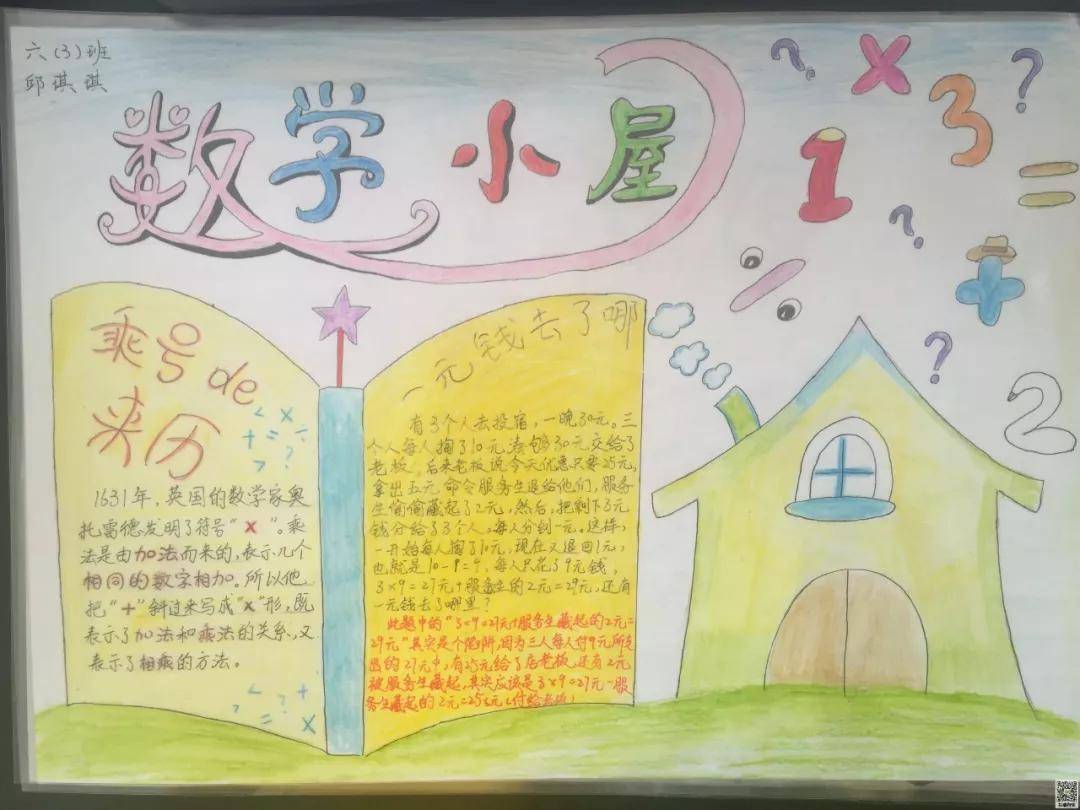 六(3)班
邱琪淇
数学小屋
乘号de
来历
1631年，英国的数学家奥
托雷德发明了符号“×”。乘
法是由加法而来的，表示几个
相同的数字相加。所以他
把“+”斜过来写成“×”形，既
表示了加法和乘法的关系，又
表示了相乘的方法。
一元钱去了哪
有3个人去投宿，一晚30元。三
个人每人掏了10元凑够30元交给了
老板。后来老板说今天优惠只要25元，
拿出五元命令服务生退给他们，服务
生偷偷藏起了2元，然后，把剩下3元
钱分给了3个人，每人分到一元。这样，
一开始每人掏了10元，现在又退回1元，
也就是10-1=9，每人只花了9元钱，
3×9=27元+服务生的2元=29元，还有
一元钱去了哪里？
此题中的“3×9=27元+服务生藏起的2元=
29元”其实是个陷阱，因为三人每人付9元所支
出的27元中，有25元给了店老板，还有2元
被服务生藏起，其实应该是3×9=27元-服
务生藏起的2元=25元(付给老板)
? × 3 ?
1 =
? +
%
?
2